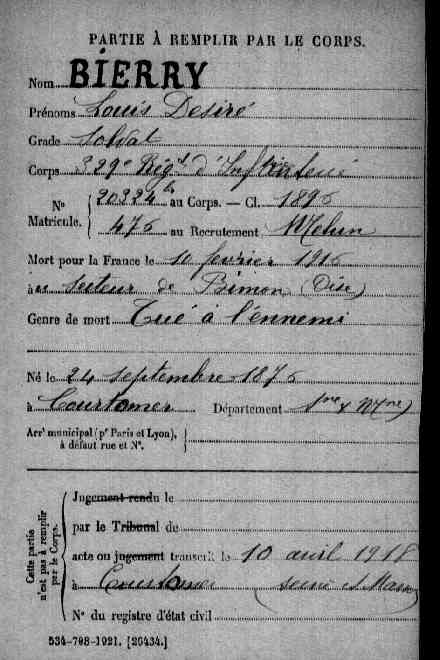 PARTIE À REMPLIR PAR LE CORPS.
Nom BIERRY
Prénoms Louis Desiré
Grade Soldat
Corps 329e Régt d'Infanterie
N° Matricule. 20224 au Corps. — Cl. 1896
476 au Recrutement Melun
Mort pour la France le 10 fevrier 1916
à au Secteur de (Oise)
Genre de mort Tué à l'ennemi
Né le 24 septembre 1876
à Courtomer Département Sne & Mne
Arrt municipal (pr Paris et Lyon),
à défaut rue et N°.
Cette partie n'est pas à remplir par le Corps.
Jugement rendu le
par le Tribunal de
acte ou jugement transcrit le 10 avril 1918
à Courtomer (Seine et Marne)
N° du registre d'état civil
534-708-1921. [26434.]